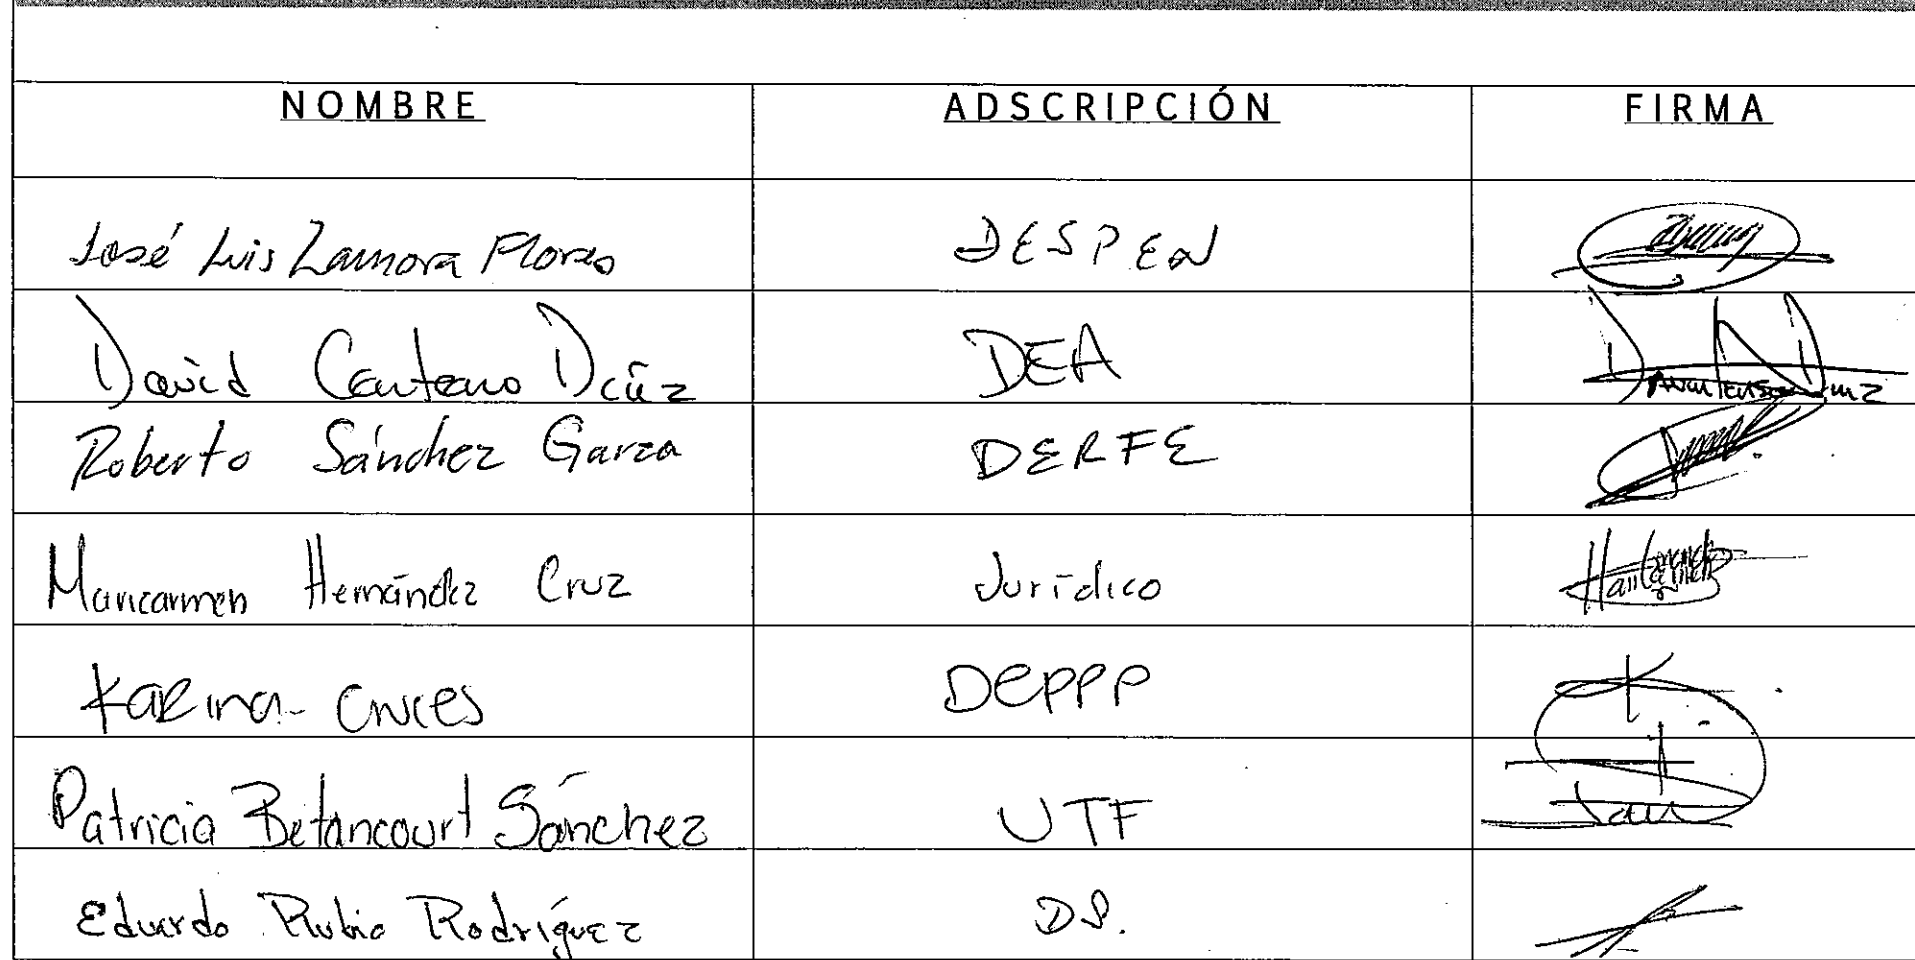 NOMBRE ADSCRIPCIÓN FIRMA
José Luis Zamora Flores DESPEN
David Centeno DEA
Roberto Sánchez Garza DERFE
Maricarmen Hernández Cruz Jurídico
Karina Cruces DEPPP
Patricia Betancourt Sánchez UTF
Eduardo Rubio Rodríguez DS.